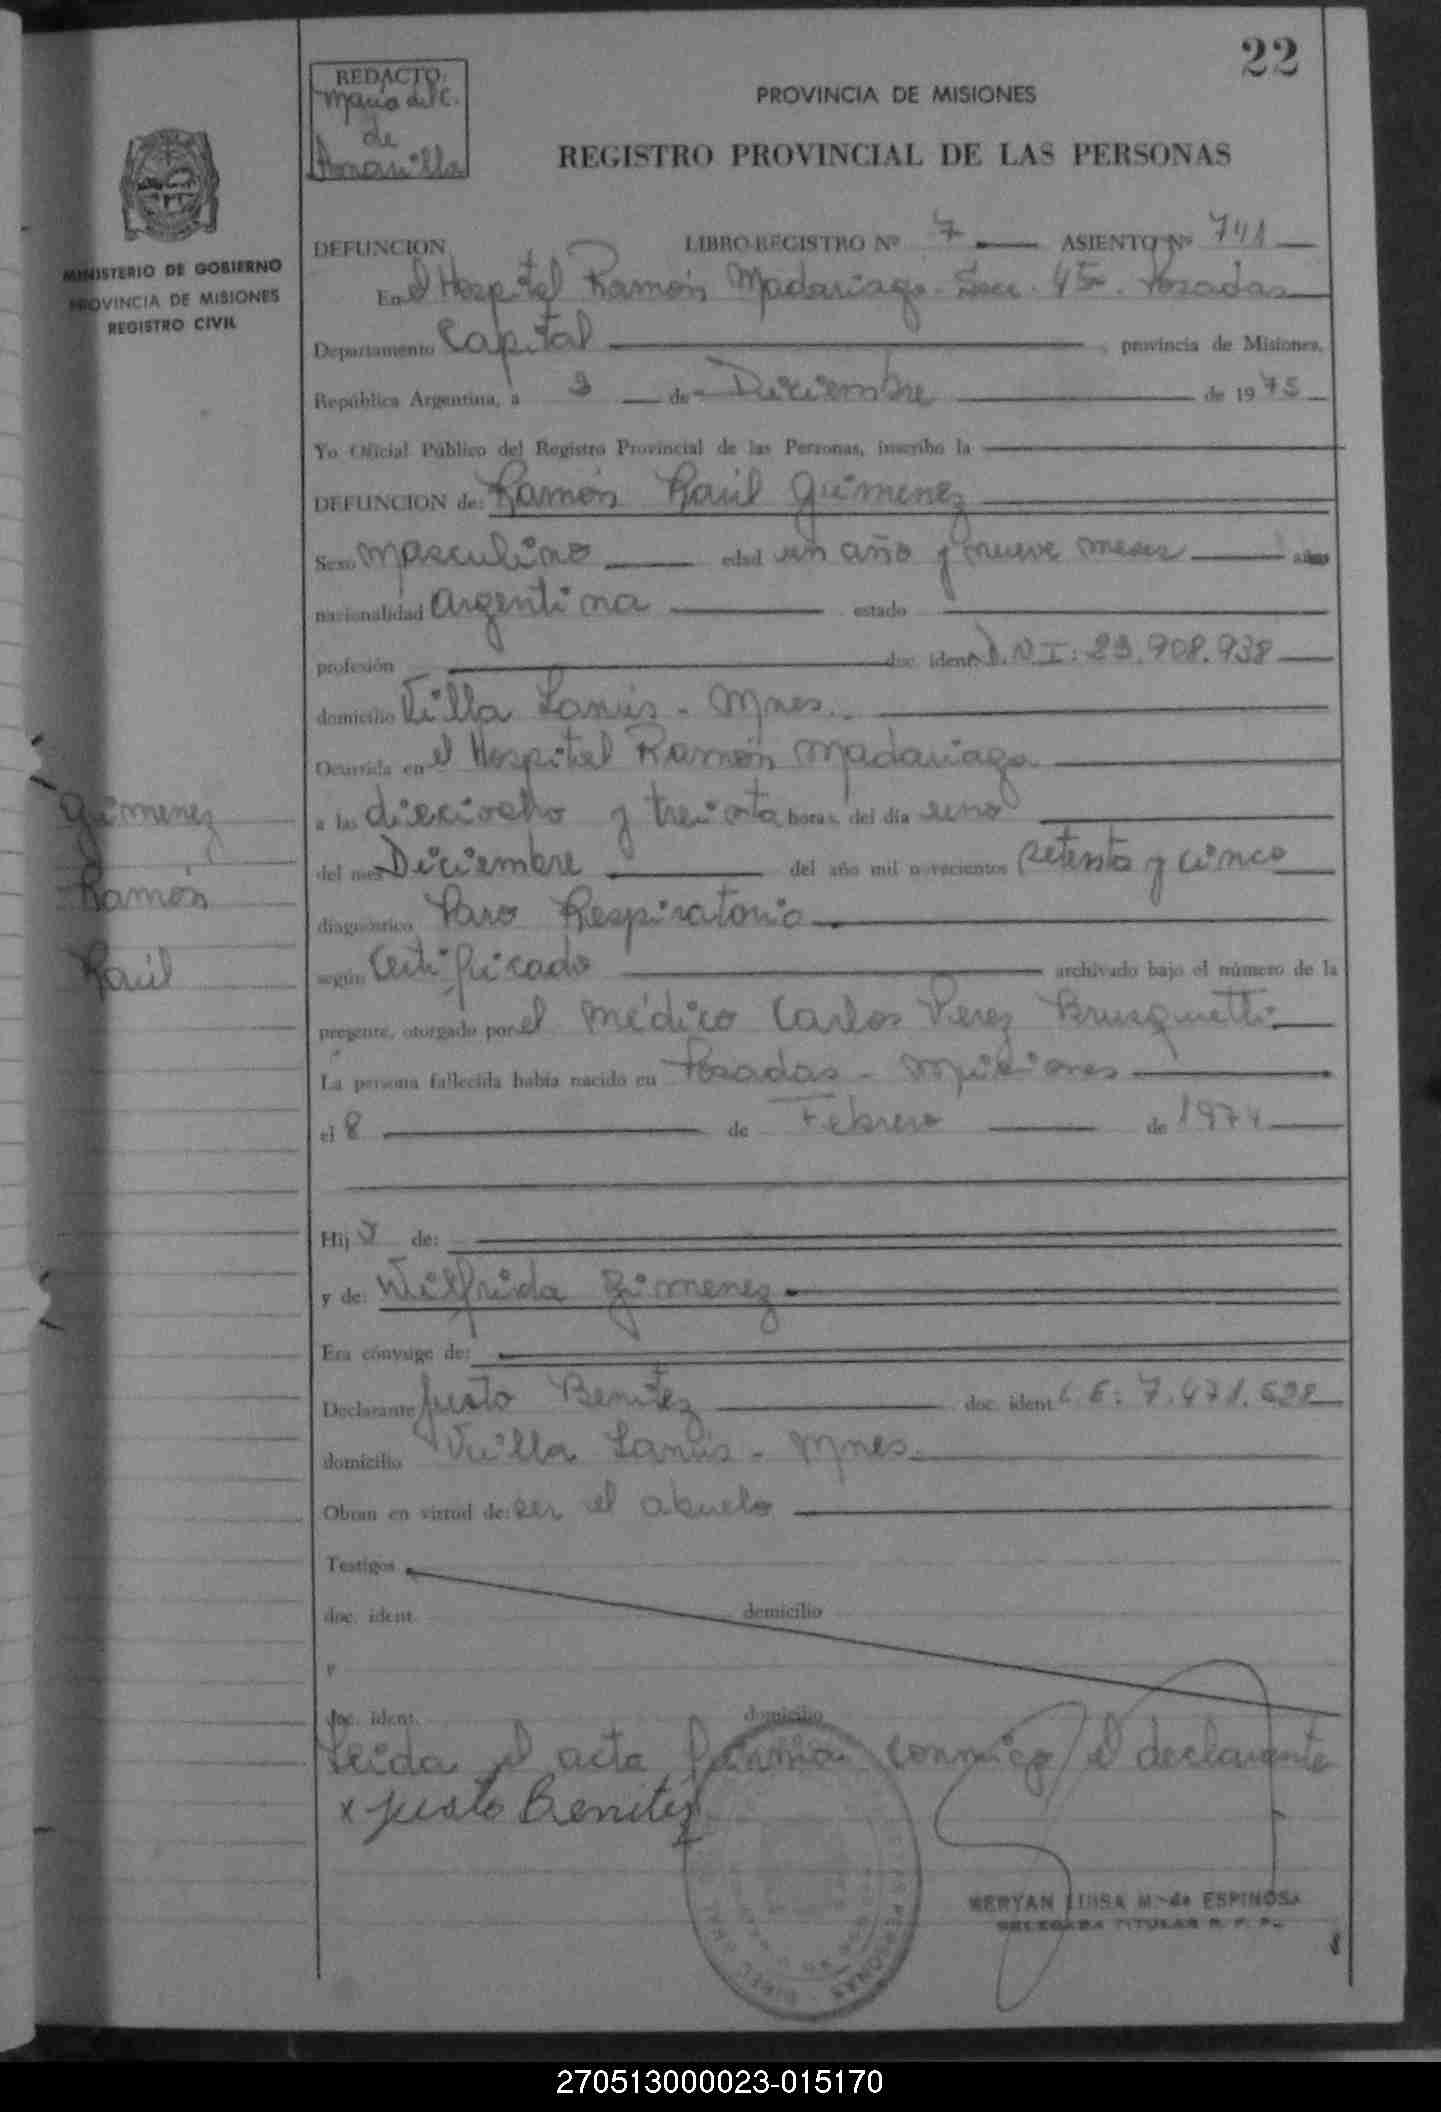 22
REDACTO:
Maria del C.
de
PROVINCIA DE MISIONES
REGISTRO PROVINCIAL DE LAS PERSONAS
MINISTERIO DE GOBIERNO
PROVINCIA DE MISIONES
REGISTRO CIVIL
DEFUNCION LIBRO REGISTRO Nº 7 ASIENTO Nº 741
En el Hospital Ramón Madariaga - Secc. 4ta. Posadas
Departamento Capital , provincia de Misiones,
República Argentina, a 3 de Diciembre de 1975
Yo Oficial Público del Registro Provincial de las Personas, inscribo la
DEFUNCION de: Ramón Raúl Gimenez
Sexo Masculino edad un año y nueve meses años
nacionalidad Argentina estado
profesión doc. ident. D.N.I: 23.908.938
domicilio Villa Lanús - Mnes.
Ocurrida en el Hospital Ramón Madariaga
a las dieciocho y treinta horas del día uno
del mes Diciembre del año mil novecientos setenta y cinco
diagnóstico Paro Respiratorio
según Certificado archivado bajo el número de la
presente, otorgado por el médico Carlos Perez Brusquetti
La persona fallecida había nacido en Posadas - Misiones
el 8 de Febrero de 1974
Gimenez
Ramón
Raúl
Hijo de:
y de: Wilfrida Gimenez
Era cónyuge de:
Declarante Justo Benitez doc. ident L.E: 7.471.698
domicilio Villa Lanús - Mnes.
Obran en virtud de: ser el abuelo
Testigos
doc. ident. domicilio
y
doc. ident. domicilio
Leida el acta firma conmigo el declarante
x Justo Benitez
MERYAN LUISA M. de ESPINOSA
DELEGADA TITULAR R. P. P.
270513000023-015170